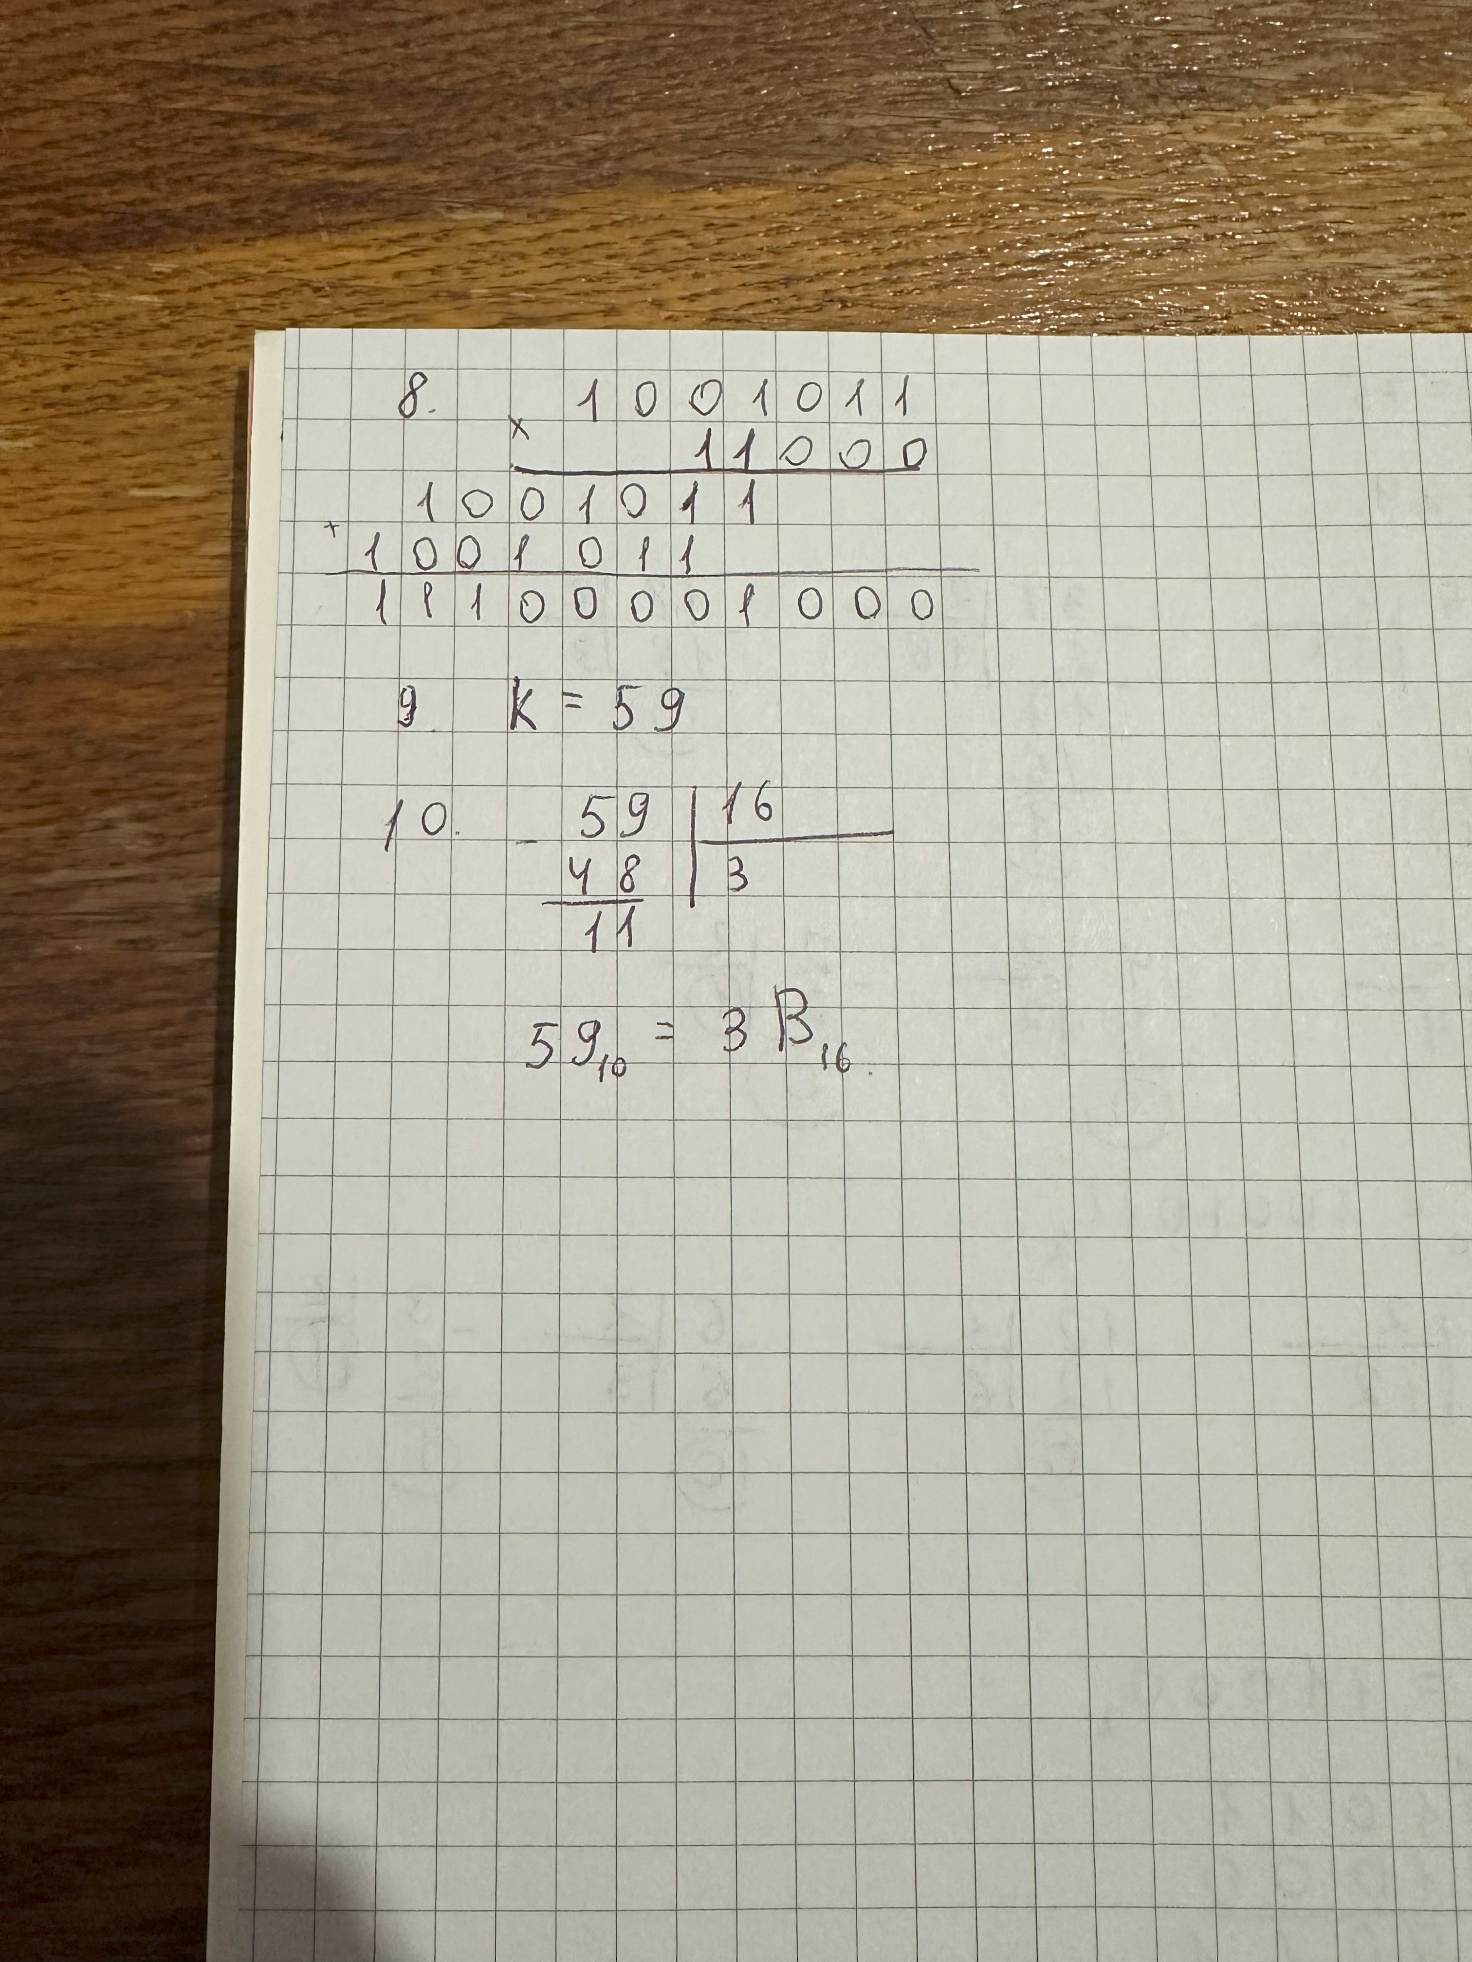 8. 1001011
× 11000
1001011
+ 1001011
11100001000
9. k = 59
10. - 59 | 16
48 | 3
11
59₁₀ = 3B₁₆.